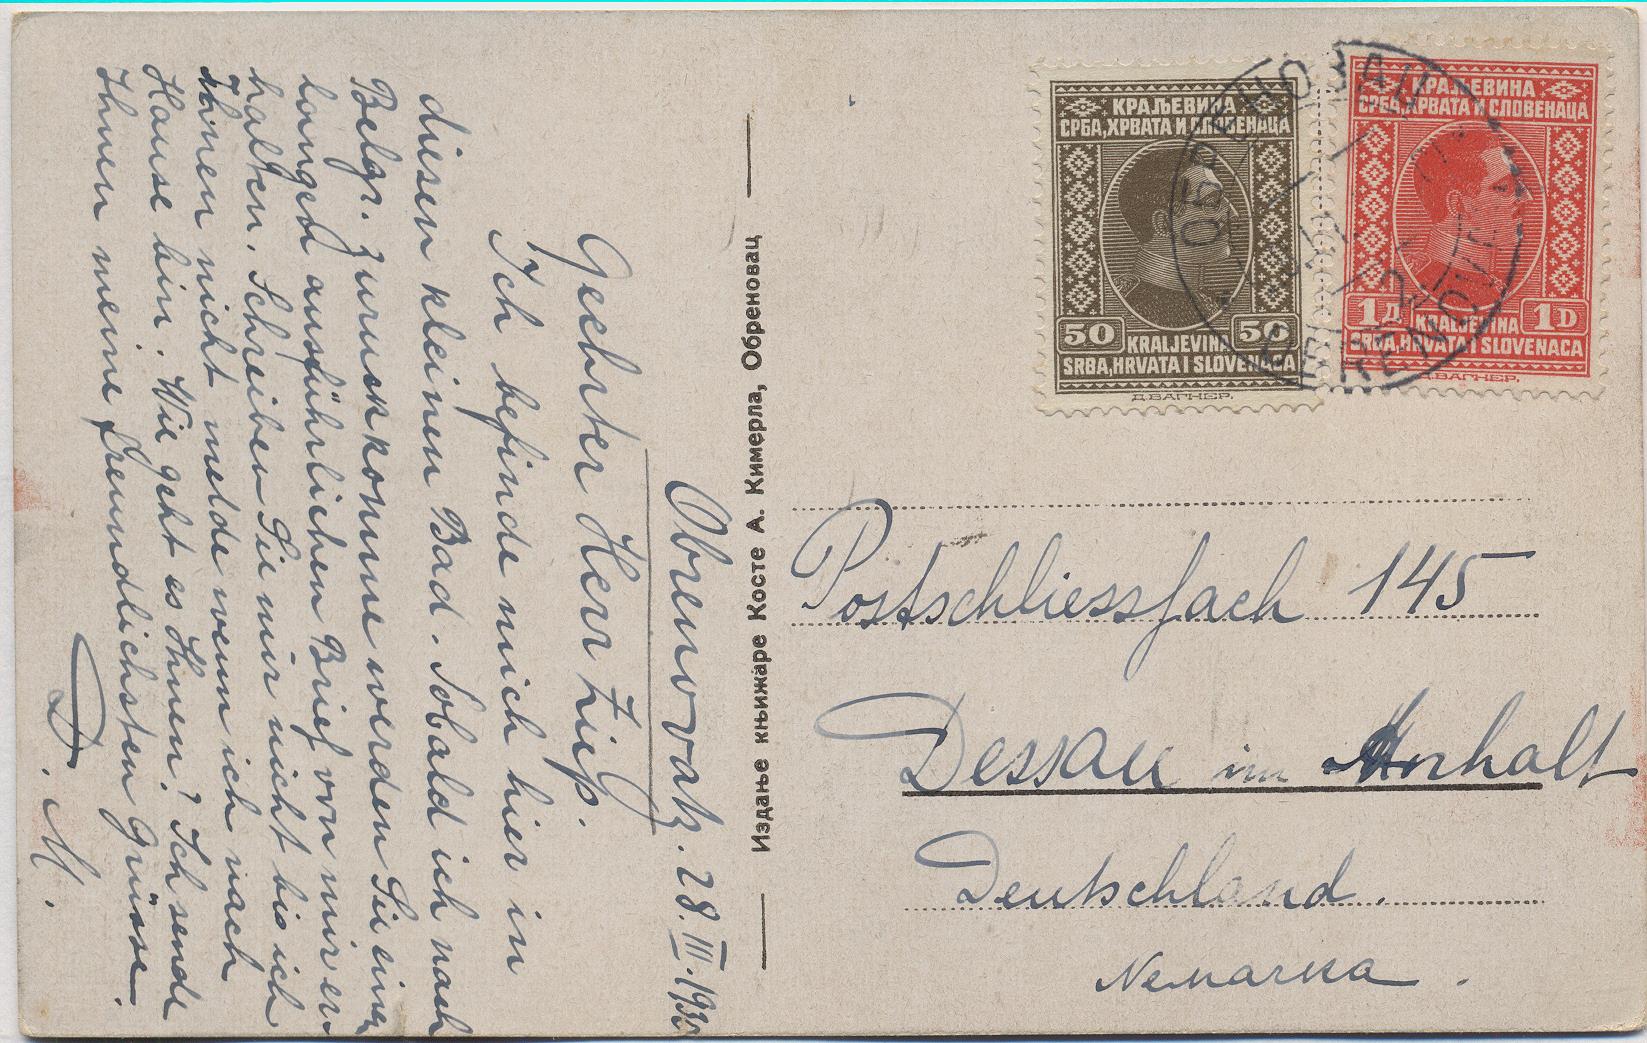 Obrenovatz. 28. III. 193
Geehrter Herr Ziep.
Ich befinde mich hier in
diesen kleinen Bad. Sobald ich nach
Belgr. zuruskomme werden Sie einen
langen ausführlichen Brief von mir er-
halten. Schreiben Sie mir nicht bis ich
Ihnen nicht melde wenn ich nach
Hause bin. Wie geht es Ihnen? Ich sende
Ihnen meine freundlichsten Grüsse.
D. M.
Издање књижаре Косте А. Кимерла, Обреновац
КРАЉЕВИНА
СРБА, ХРВАТА И СЛОВЕНАЦА
50 50
KRALJEVINA
SRBA, HRVATA I SLOVENACA
Д.ВАГНЕР.
КРАЉЕВИНА
СРБА, ХРВАТА И СЛОВЕНАЦА
1Д 1D
KRALJEVINA
SRBA, HRVATA I SLOVENACA
Д.ВАГНЕР.
ОБРЕНОВАЦ
OBRENOVAC
Postschliessfach 145
Dessau im Anhalt
Deutschland.
Немачка.